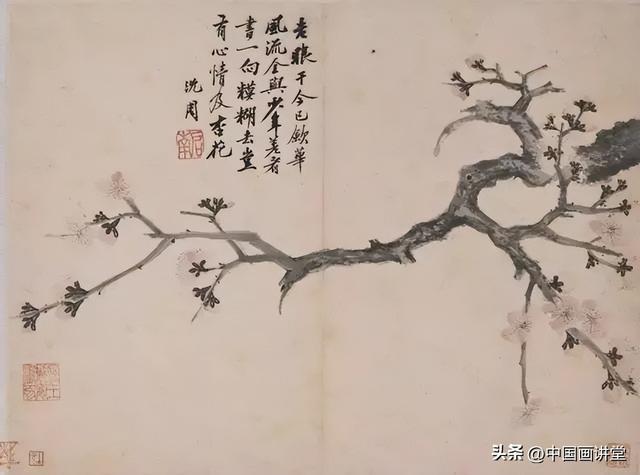 老眼于今已歛華
風流全與少年差看
書一向糢糊去豈
有心情及杏花
沈周
头条 @中国画讲堂